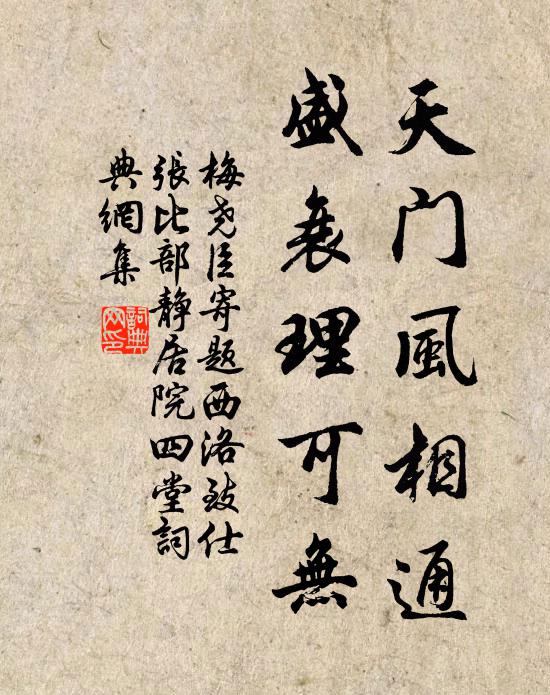 天门風相通
盛衰理可無
梅堯臣寄題西洛致仕
張比部靜居院四堂詞
典網集
詞典
网印